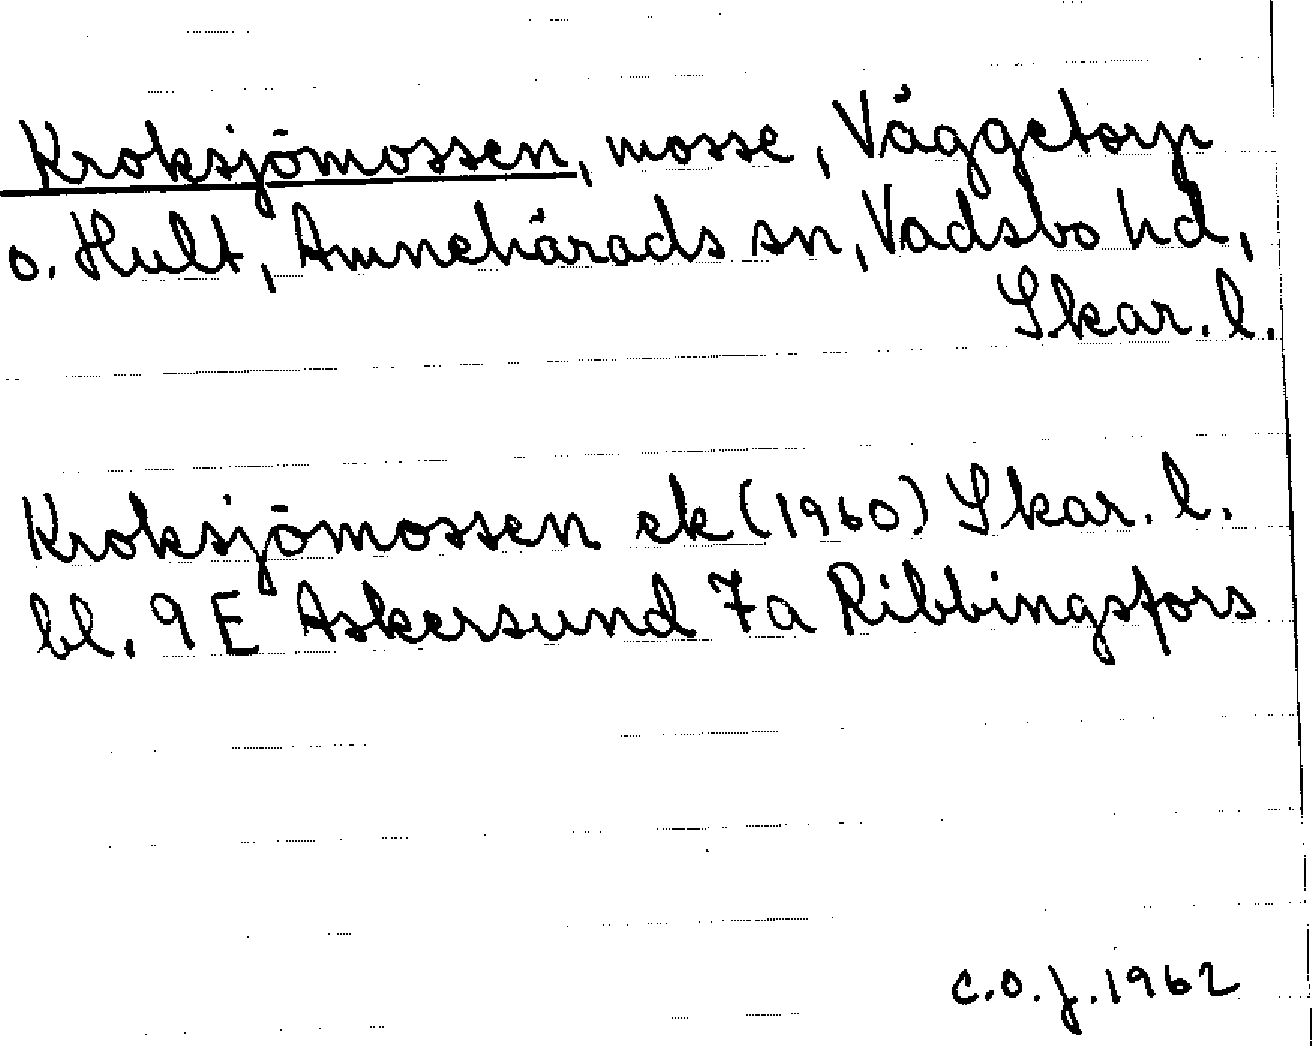 Kroksjömossen, mosse, Väggetorp
o. Hult, Amnehärads sn, Vadsbo hd,
Skar. l.
Kroksjömossen ek (1960) Skar. l.
bl. 9 E Askersund 7a Ribbingsfors
C.O.J. 1962